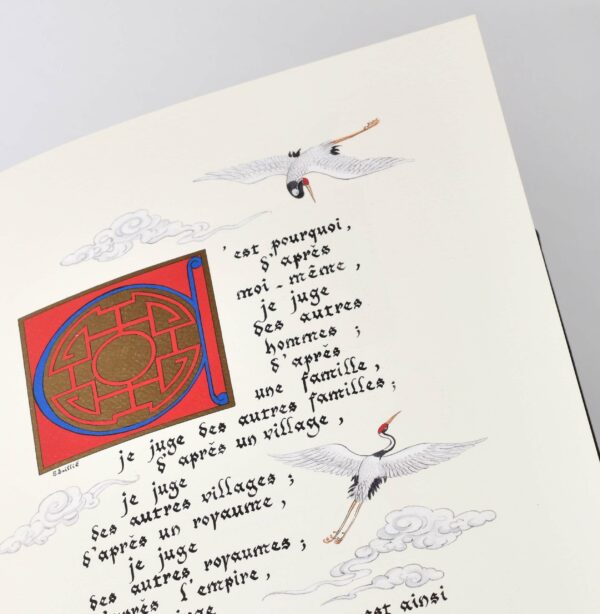 C'est pourquoi,
d'après
moi-même,
je juge
des autres
hommes ;
d'après
une famille,
je juge des autres familles ;
d'après un village,
je juge
des autres villages ;
d'après un royaume,
je juge
des autres royaumes ;
d'après l'empire,
est ainsi